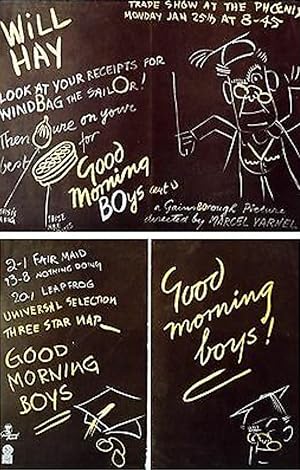 WILL
HAY
TRADE SHOW AT THE PHOENIX
MONDAY JAN 25th AT 8-45
LOOK AT YOUR RECEIPTS FOR
WINDBAG THE SAILOR!
Then
ure on your
best
for
Good
Morning
BOys
(cert U)
a Gainsborough Picture
directed by MARCEL VARNEL
2-1 FAIR MAID
13-8 NOTHING DOING
20-1 LEAPFROG
UNIVERSAL SELECTION
THREE STAR NAP
GOOD
MORNING
BOYS
Good
morning
boys!